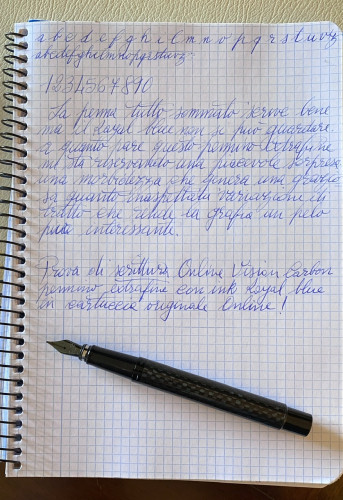 a b c d e f g h i l m n o p q r s t u v z
abcdefghilmnopqrstuvz
1234567890
La penna tutto sommato scrive bene
ma il Royal blue non si può guardare.
e quanto pare questo pennino extrafine
mi ha riservato una piacevole sorpresa
una morbidezza che genera una grafia
quanto inaspettata variazione di
tratto che rende la grafia un pelo
più interessante.
Prova di scrittura Online Vision Carbon
pennino extrafine con ink Royal blue
in cartuccia originale Online!